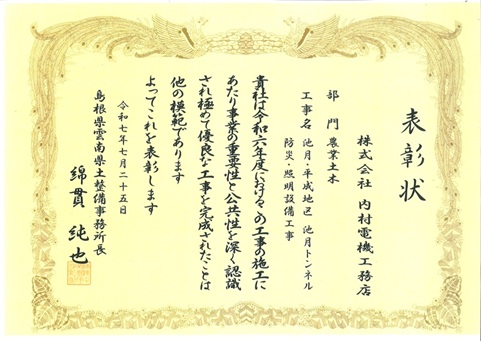 表彰状
株式会社 内村電機工務店
部門 農業土木
工事名 池月・平成地区 池月トンネル
防災・照明設備工事
貴社は令和六年度におけるこの工事の施工に
あたり事業の重要性と公共性を深く認識
され極めて優良な工事を完成されたことは
他の模範であります
よってこれを表彰します
令和七年七月二十五日
島根県雲南県土整備事務所長
綿貫 純也